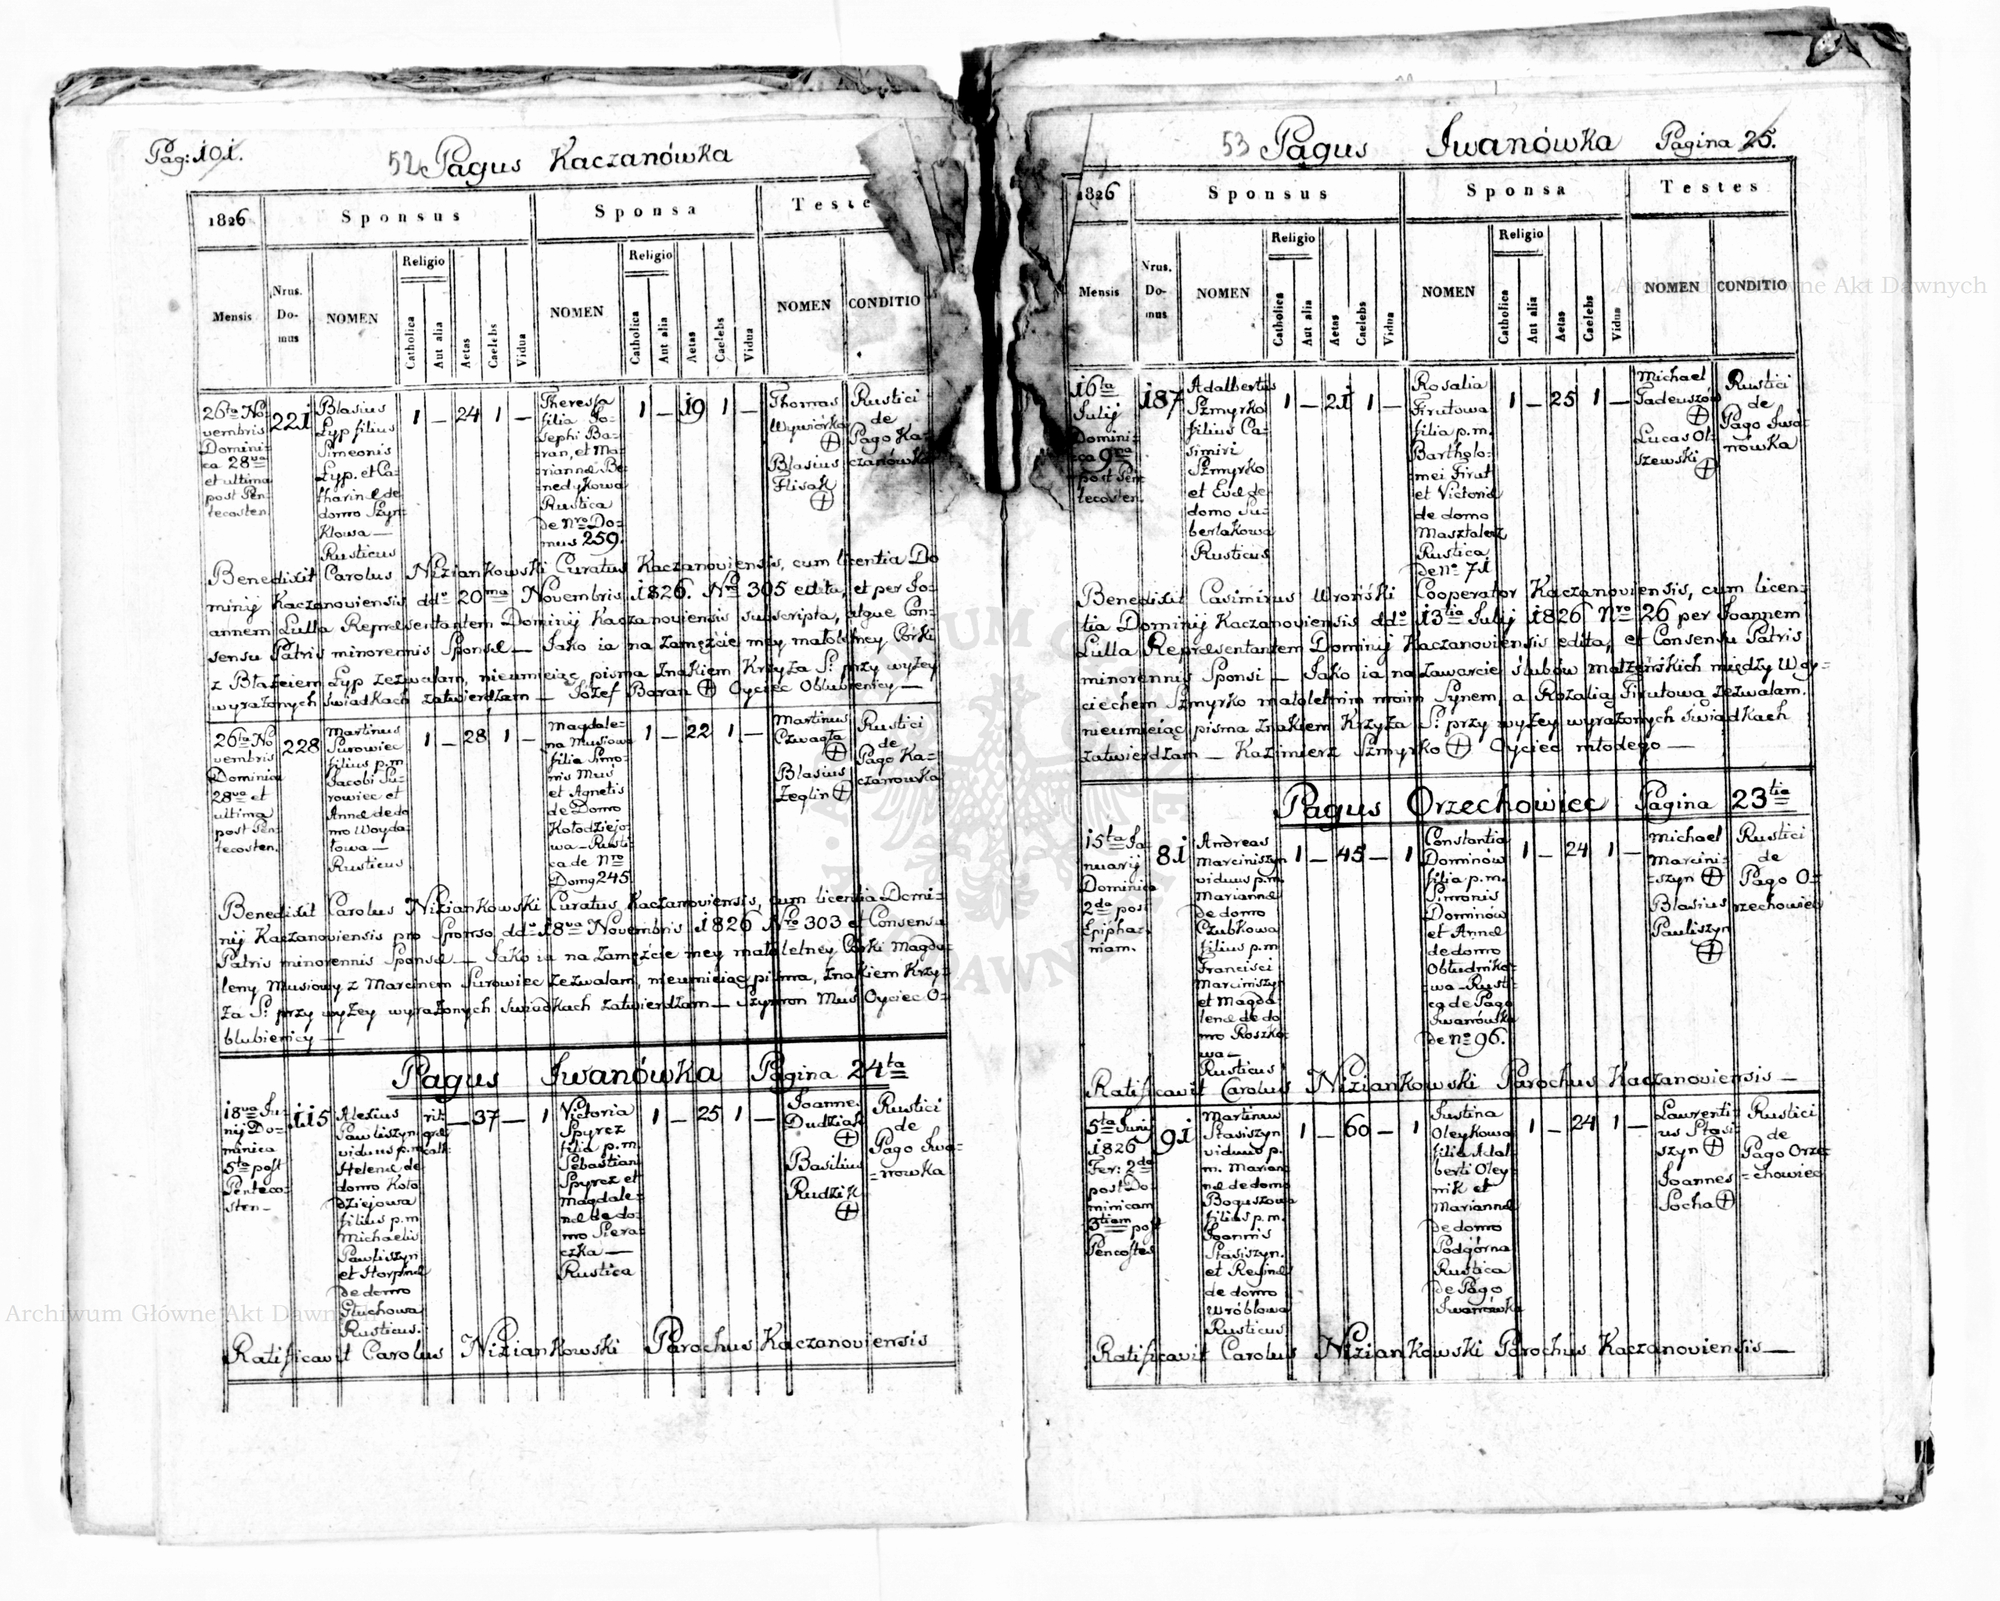 Pag: 101.
52 Pagus Kaczanówka
1826
Sponsus
Sponsa
Teste
Mensis
Nrus. Do- mus
NOMEN
Religio
Catholica
Aut alia
Aetas
Caelebs
Vidua
NOMEN
Religio
Catholica
Aut alia
Aetas
Caelebs
Vidua
NOMEN
CONDITIO
26ta No
vembris
Domini-
ca 28va
et ultima
post Pen-
tecosten
221
Blasius
Łyp filius
Simeonis
Łyp. et Ca-
tharinæ de
domo Szyn-
Klowa —
Rusticus
1 — 24 1 —
Theressa
filia Jo-
sephi Ba-
ran, et Ma-
riannæ Be-
nedykowa
Rustica
de Nro Do-
mus 259.
1 — 19 1 —
Thomas
Wywiórka
Blasius
Flisak
Rustici
de
Pago Ka-
czanówka
Benedixit Carolus Niziankowski Curatus Kaczanoviensis, cum licentia Do
minij Kaczanoviensis ddo 20ma Novembris 1826. Nro 305 edita, et per Jo-
annem Lulla Repræsentantem Dominij Kaczanoviensis subscripta, atque Con-
sensu Patris minorennis Sponsæ — Jako ia na zamęzcie mey małoletney Córki
z Błażeiem Łyp zezwalam, nieumieiąc pisma znakiem Krzyża S. przy wyżey
wyrażonych świadkach zatwierdzam — Józef Baran Oyciec Oblubienicy —
26ta No
vembris
Dominica
28va et
ultima
post Pen-
tecosten.
228
Martinus
Surowiec
filius p.m
Jacobi Su-
rowiec et
Annæ de do
mo Woyda-
łowa —
Rusticus
1 — 28 1 —
Magdale-
na Musiowa
filia Simo-
nis Mus
et Agnetis
de Domo
Kołodziejo-
wa — Rusti-
ca de Nro
Domg 245
1 — 22 1 —
Martinus
Czwagła
Blasius
Zeglin
Rustici
de
Pago Ka-
czanowka
Benedixit Carolus Niziankowski Curatus Kaczanoviensis, cum licentia Domi-
nij Kaczanoviensis pro Sponso ddo 18va Novembris 1826 Nro 303 et Consensu
Patris minorennis Sponsæ — Jako ia na Zamęźcie mey małoletney Corki Magda-
leny Musiowy z Marcinem Surowiec zezwalam, nieumieiąc pisma, znakiem Krzy-
ża S. przy wyżey wyrażonych świadkach zatwierdzam — Szymon Mus Oyciec O-
blubienicy —
Pagus Iwanówka Pagina 24ta
18va Ju-
nij Do-
minica
5ta post
Penteco-
sten —
115
Alexius
Pawliszyn
viduus p.m
Helenæ de
domo Koło
dziejowa
filius p.m
Michaelis
Pawliszyn
et Horpinæ
de domo
Głuchowa
Rusticus.
rit:
græ
cath:
— 37 — 1
Victoria
Spyrez
filia p.m
Sebastiani
Spyrez et
Magdale-
næ de do-
mo Siera-
czka —
Rustica
1 — 25 1 —
Joannes
Dudziak
Basilius
Rudzik
Rustici
de
Pago Iwa-
nowka
Ratificavit Carolus Niziankowski Parochus Kaczanoviensis
53 Pagus Iwanówka Pagina 25.
1826
Sponsus
Sponsa
Testes
Mensis
Nrus. Do- mus
NOMEN
Religio
Catholica
Aut alia
Aetas
Caelebs
Vidua
NOMEN
Religio
Catholica
Aut alia
Aetas
Caelebs
Vidua
NOMEN
CONDITIO
16ta
Julij
Domini-
ca 9na
post Pen
tecosten
187
Adalbertus
Szmyrko
filius Ca-
simiri
Szmyrko
et Evæ de
domo Su-
berlakowa
Rusticus
1 — 21 1 —
Rosalia
Firutowa
filia p.m.
Bartholo-
mei Firut
et Victoriæ
de domo
Masztalerz
Rustica
de No 71
1 — 25 1 —
Michael
Tadeuszów
Lucas Ol-
szewski
Rustici
de
Pago Iwa-
nówka
Benedixit Casimirus Wroński Cooperator Kaczanoviensis, cum licen-
tia Dominij Kaczanoviensis ddo 13tia Julij 1826 Nro 26 per Joannem
Lulla Repræsentantem Dominij Kaczanoviensis edita, et Consensu Patris
minorennis Sponsi — Jako ia na zawarcie ślubów małżeńskich między Woy-
ciechem Szmyrko małoletnim moim Synem, a Rozalią Firutową zezwalam.
nieumieiąc pisma znakiem Krzyża S. przy wyżey wyrażonych świadkach
zatwierdzam — Kazimierz Szmyrko Oyciec młodego —
Pagus Orzechowiec Pagina 23tia
15ta Ja
nuarij
Dominica
2da post
Epipha-
niam.
81
Andreas
Marciniszyn
viduus p.m.
Mariannæ
de domo
Czubkowa
filius p.m
Francisci
Marciniszyn
et Magda-
lenæ de do
mo Roszko-
wa —
Rusticus
1 — 45 — 1
Constantia
Dominów
filia p.m.
Simonis
Dominów
et Annæ
de domo
Obłudniko-
wa — Rusti-
ca de Pago
Iwanówka
de No 96.
1 — 24 1 —
Michael
Marcini-
szyn
Blasius
Pauliszyn
Rustici
de
Pago O-
rzechowiec
Ratificavit Carolus Niziankowski Parochus Kaczanoviensis —
5ta Junij
1826
Fer: 2da
post Do-
minicam
3tiam post
Pencostes
91
Martinus
Stasiszyn
viduus p.
m. Marian
næ de domo
Boguszowa
filius p.m.
Joannis
Stasiszyn.
et Reginæ
de domo
Wróblowa
Rusticus
1 — 60 — 1
Justina
Oleykowa
filia Adal
berti Oley-
nik et
Mariannæ
de domo
Podgórna
Rustica
de Pago
Iwanówka
1 — 24 1 —
Laurenti-
us Stasi-
szyn
Joannes
Socha
Rustici
de
Pago Orze-
chowiec
Ratificavit Carolus Niziankowski Parochus Kaczanoviensis —
Archiwum Główne Akt Dawnych
Archiwum Główne Akt Dawnych